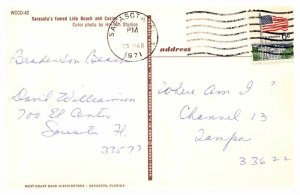 WCCD-42
Sarasota's famed Lido Beach and Casino
Color photo by
Studios
SARASOTA
PM
25 MAR
1971
address
Bradenton Beach
David Williamson
700 El Center
Sarasota Fl.
33577
Where Am I?
Channel 13
Tampa
33622
WEST COAST CARD DISTRIBUTORS • SARASOTA, FLORIDA